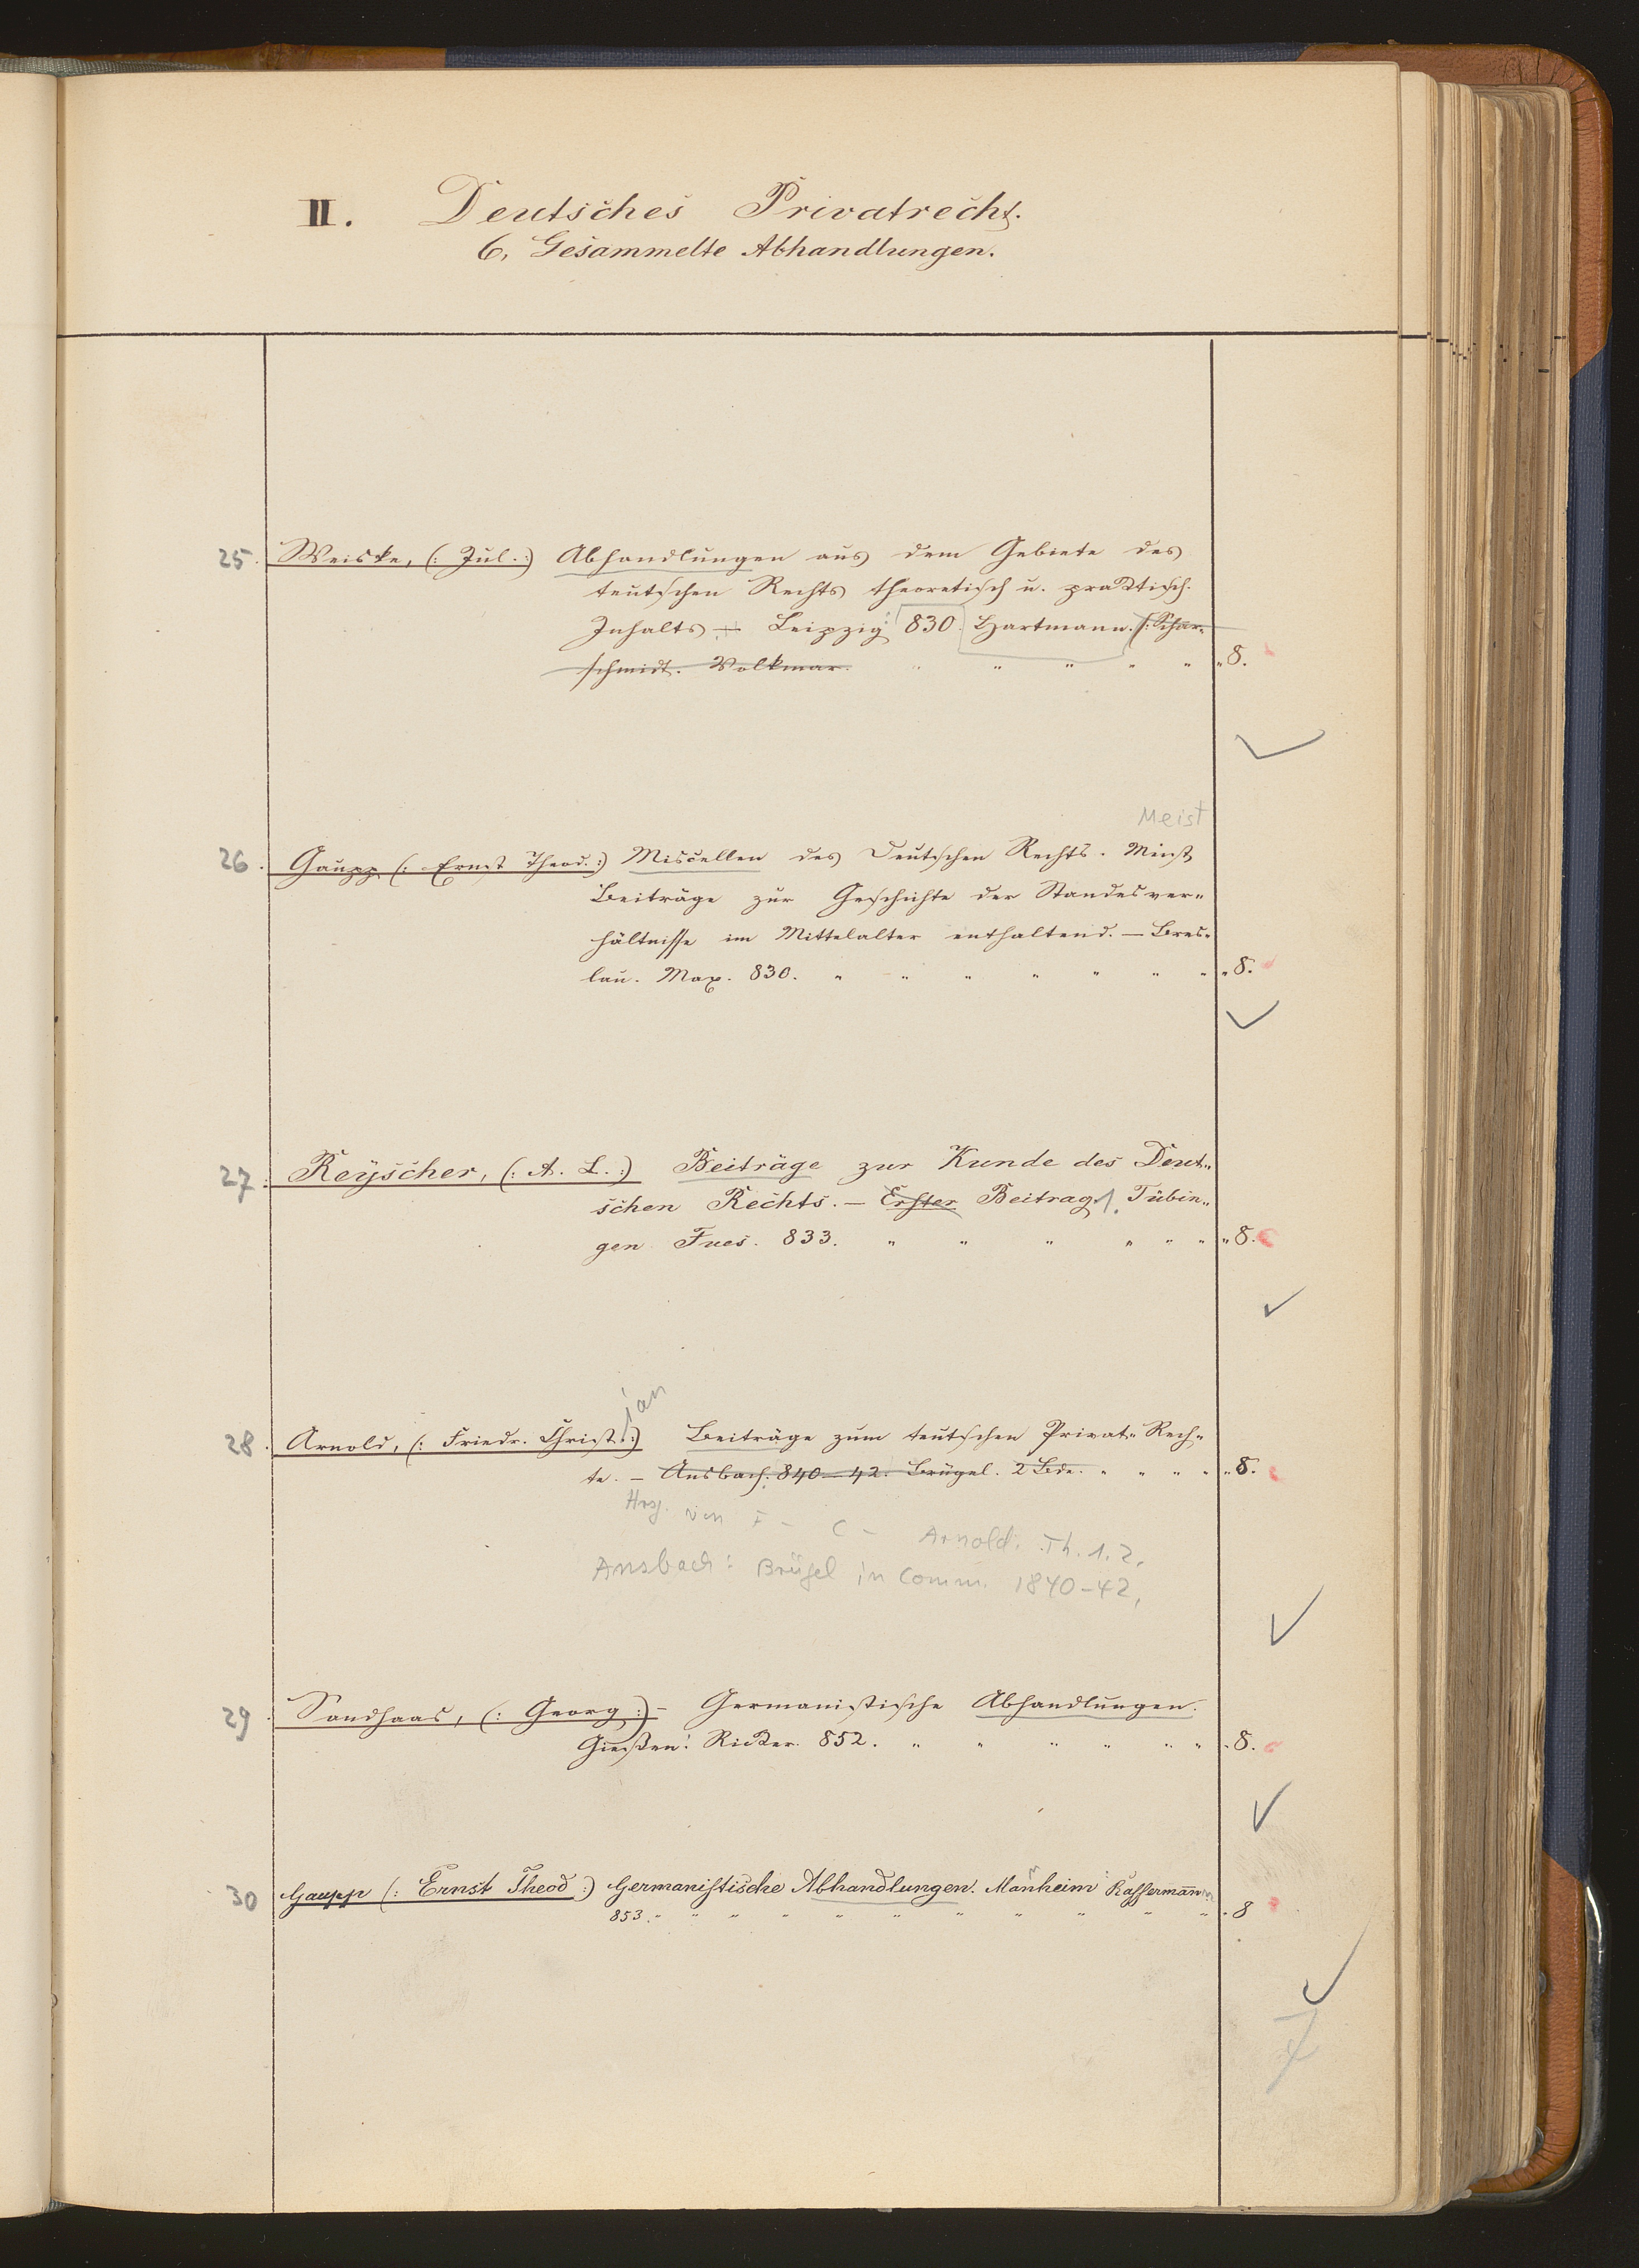 II. Deutsches Privatrecht.
6, Gesammelte Abhandlungen.
25. Weiske, (: Jul. :) Abhandlungen aus dem Gebiete des
teutschen Rechts theoretisch u. praktisch.
Inhalts. — Leipzig 830. Hartmann. (: Schar-
schmidt. Volkmar. " " " " " " 8.
Meist
26. Gaupp (: Ernst Theod. :) Miscellen des Deutschen Rechts. Meist
Beiträge zur Geschichte der Standesver-
hältnisse im Mittelalter enthaltend. — Bres-
lau. Max. 830. " " " " " " " " 8.
27. Reÿscher, (: A. L. :) Beiträge zur Kunde des Deut-
schen Rechts. — Erster Beitrag 1. Tübin-
gen Fues. 833. " " " " " " " 8.
ian
28. Arnold, (: Friedr. Christ. :) Beiträge zum teutschen Privat-Rech-
te. — Ansbach. 840–42. Brügel. 2 Bde. " " " " " 8.
Hrsg. von F – C – Arnold. Th. 1. 2.
Ansbach: Brügel in Comm. 1840–42,
29. Sandhaas, (: Georg :) – Germanistische Abhandlungen.
Gießen: Ricker. 852. " " " " " " " 8.
30 Gaupp (: Ernst Theod :) Germanistische Abhandlungen. Mannheim Bassermann
853. " " " " " " " " " " " 8